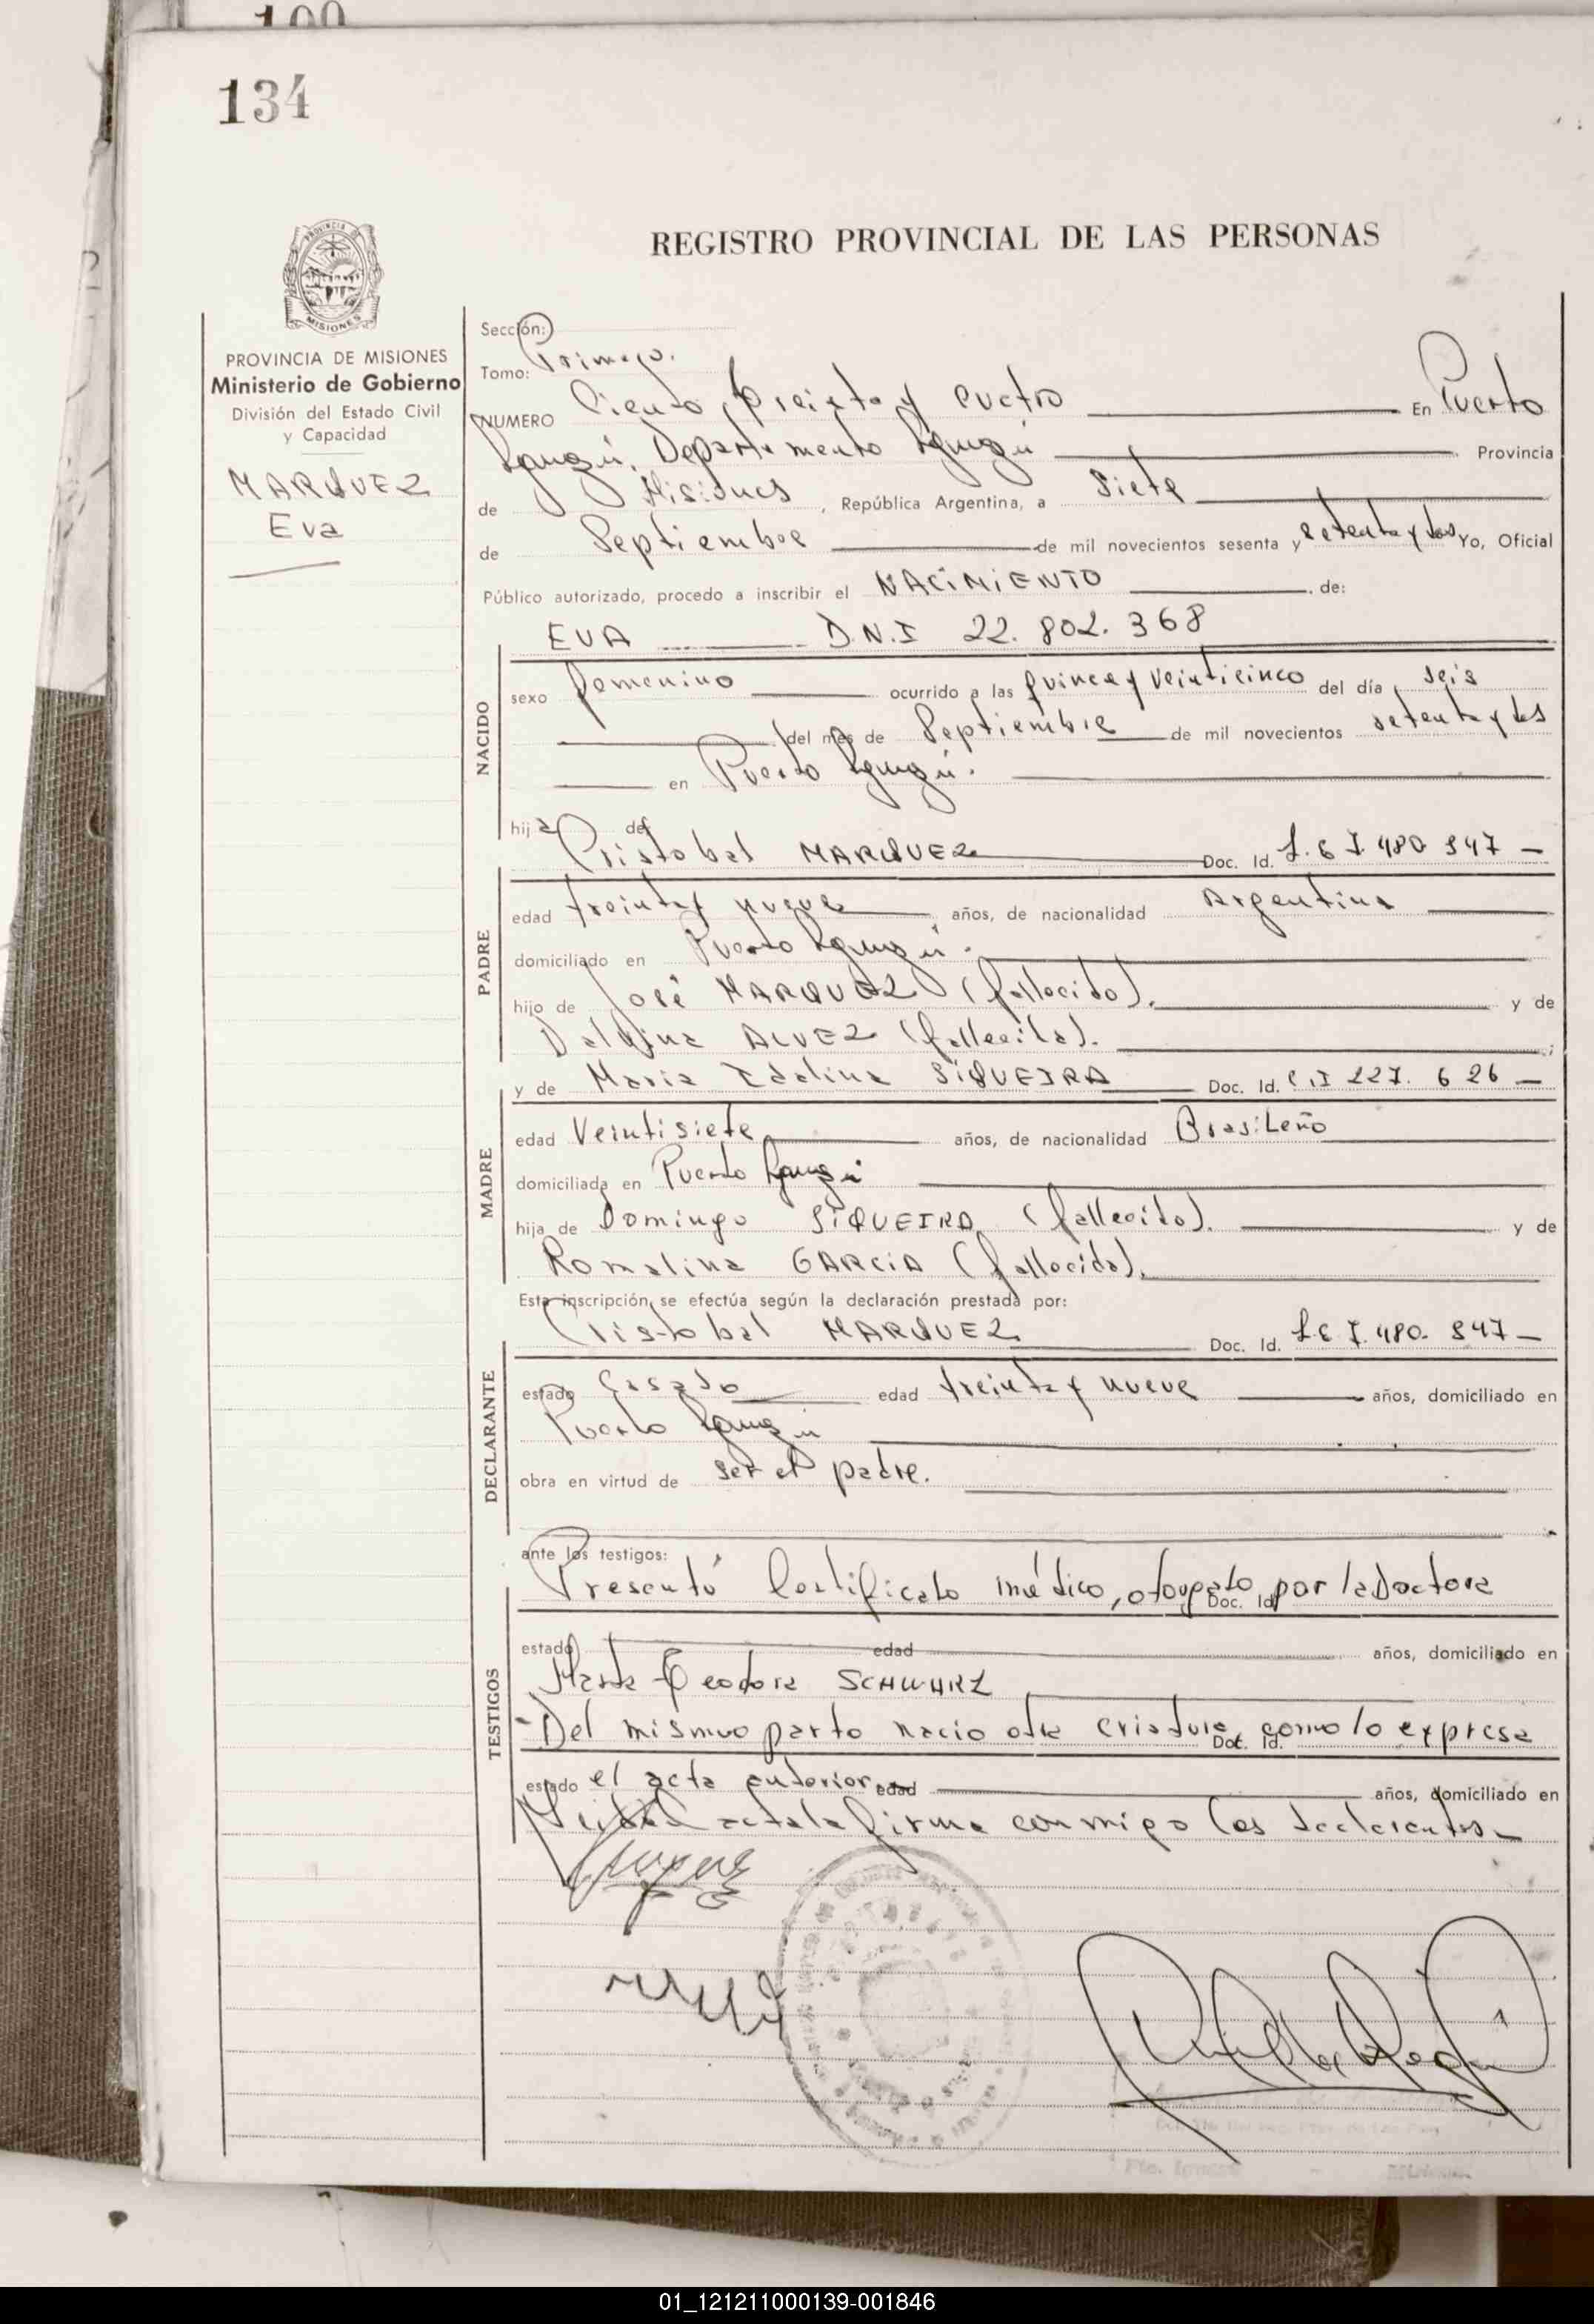 134
REGISTRO PROVINCIAL DE LAS PERSONAS
MISIONES
PROVINCIA DE MISIONES
Ministerio de Gobierno
División del Estado Civil
y Capacidad
MARQUEZ
Eva
Sección:
Tomo: Primero.
NUMERO Ciento treinta y cuatro En Puerto
Iguazú, Departamento Iguazú Provincia
de Misiones, República Argentina, a siete
de Septiembre de mil novecientos sesenta y setenta y dos Yo, Oficial
Público autorizado, procedo a inscribir el NACIMIENTO de:
EVA D.N.I 22.802.368
NACIDO
sexo femenino ocurrido a las quince y veinticinco del día seis
del mes de Septiembre de mil novecientos setenta y dos
en Puerto Iguazú.
hija de
Cristobal MARQUEZ Doc. Id.
PADRE
edad treinta y nueve años, de nacionalidad Argentina
domiciliado en Puerto Iguazú.
hijo de José MARQUEZ (fallecido). y de
ALVEZ (fallecida).
y de Maria Idalina SIQUEIRA Doc. Id. C.I 227.626
MADRE
edad Veintisiete años, de nacionalidad Brasileño
domiciliada en Puerto Iguazú
hija de Domingo SIQUEIRA (fallecido). y de
Romalina GARCIA (fallecida).
Esta inscripción, se efectúa según la declaración prestada por:
Cristobal MARQUEZ Doc. Id.
DECLARANTE
estado Casado edad treinta y nueve años, domiciliado en
Puerto Iguazú
obra en virtud de ser el padre.
ante los testigos:
Presentó Certificado médico, otorgado por la Doctora
Doc. Id.
TESTIGOS
estado edad años, domiciliado en
Marta Teodora SCHWARZ
-Del mismo parto nacio otra criatura, como lo expresa
Doc. Id.
estado el acta anterior edad años, domiciliado en
acta la firma conmigo los declarantes
01_121211000139-001846